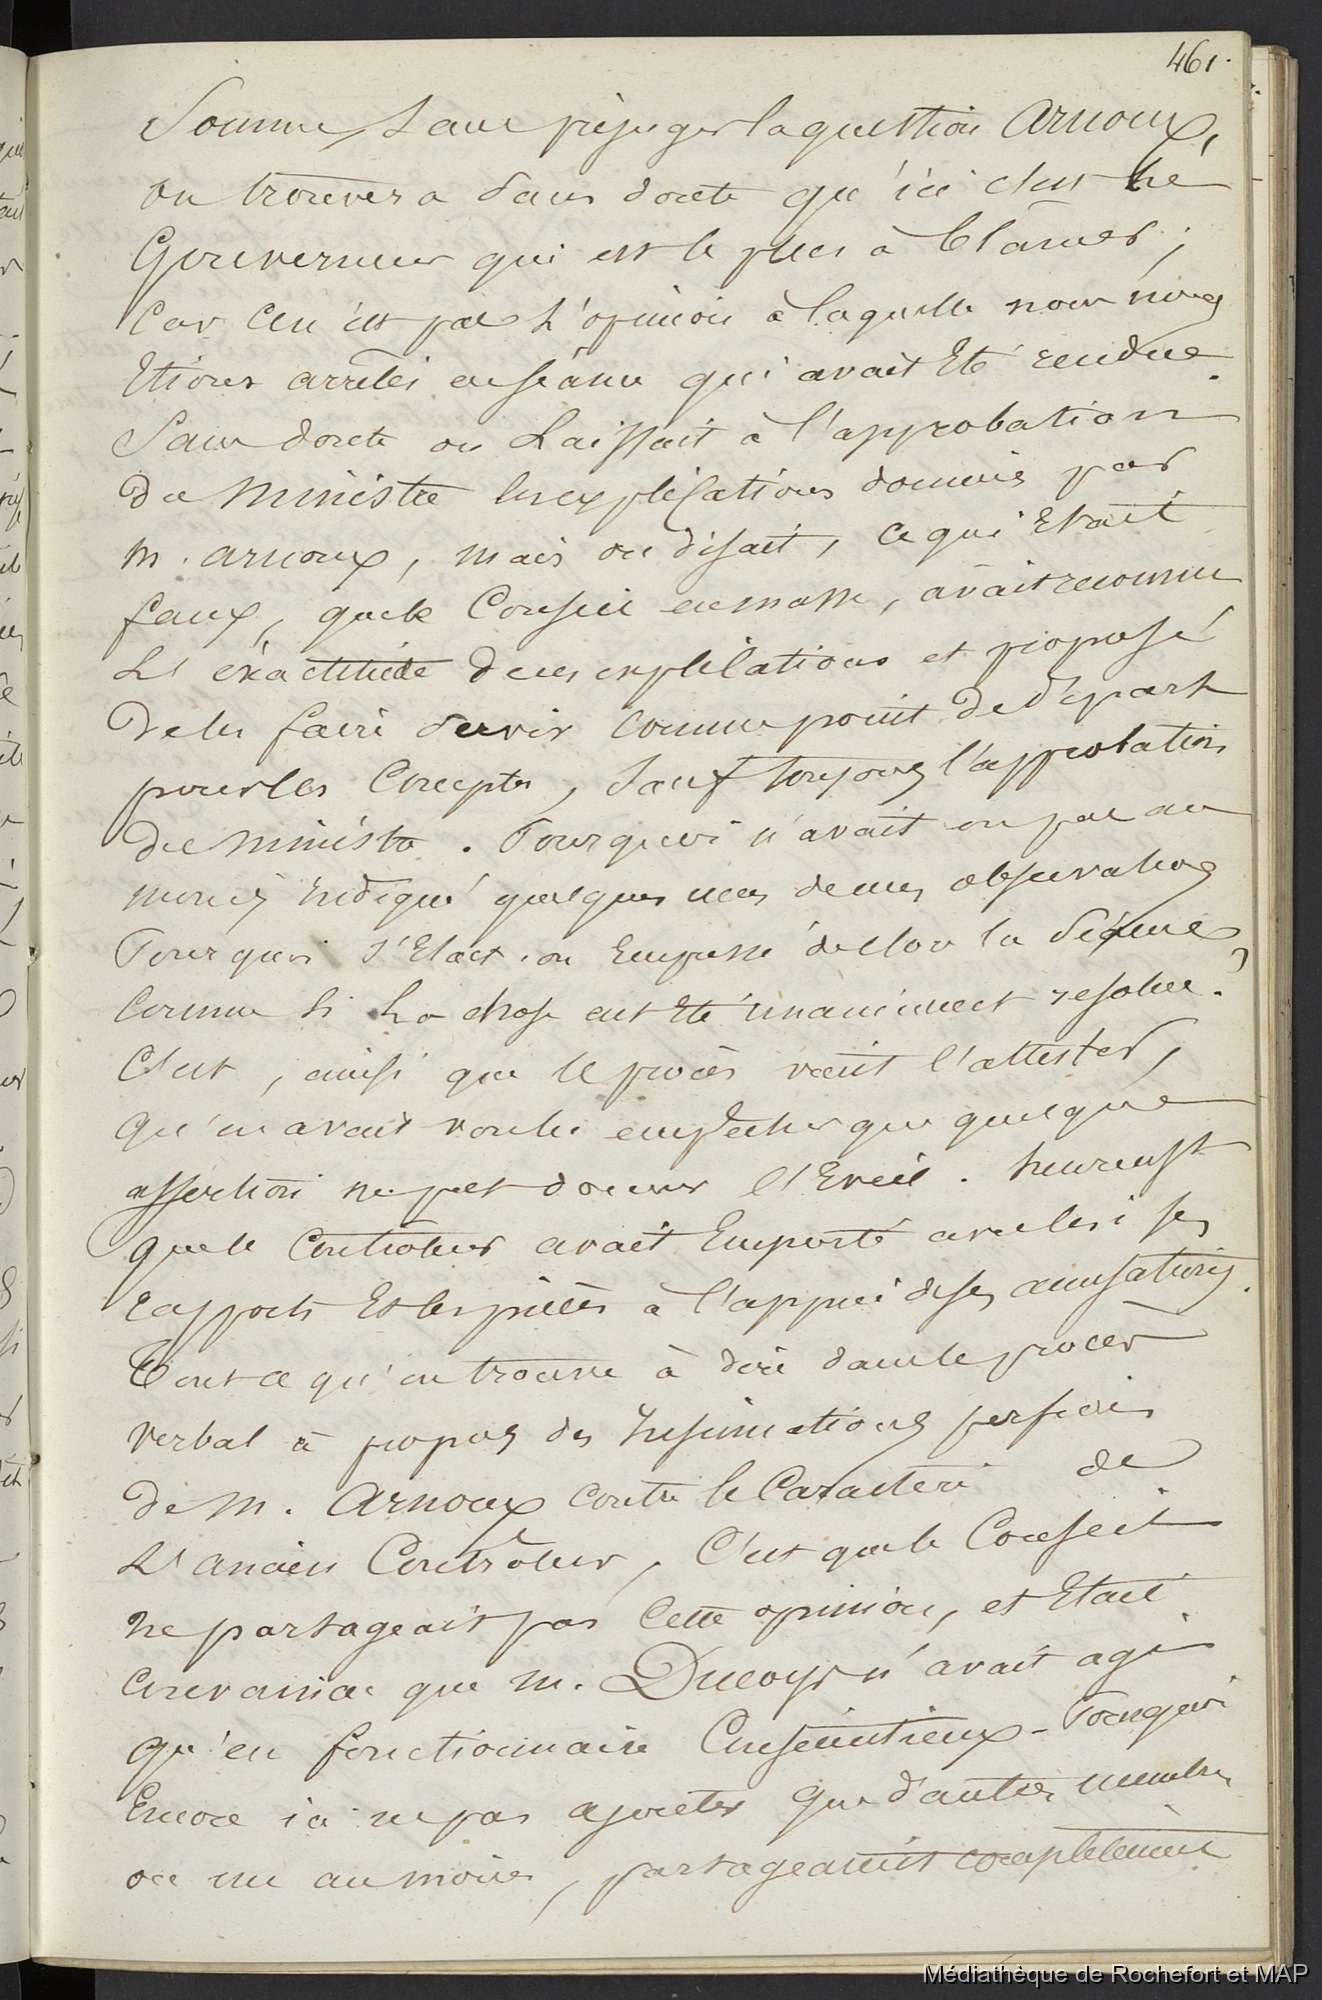 461.
Somme, sans préjuger la question Arnoux,
on trouvera sans doute qu'ici c'est le
Gouverneur qui est le plus à blâmer ;
Car ce n'est pas l'opinion à laquelle nous nous
Etions arrêtés en séance qui avait Eté rendue.
Sans doute on Laissait à l'approbation
du Ministre les explications données par
M. Arnoux, mais on disait, ce qui Etait
faux, que le Conseil en masse, avait reconnu
L'exactitude de ces explications et proposé
de les faire servir comme point de départ
pour les Comptes, sauf toujours l'approbation
du Ministre. Pourquoi n'avait on pas au
moins Indiqué quelques unes de mes observations
Pourquoi s'Etait-on Empressé de clore la séance,
Comme si La chose eut Eté unanimement resolue ?
C'est, ainsi que le procès vient l'attester,
qu'on avait voulu empêcher que quelque
assertion ne put donner l'Eveil. heureust
que le Controleur avait Emporté avec lui ses
rapports Et les pièces à l'appui de ses accusations.
Tout ce qu'on trouve à dire dans le procès
verbal à propos des Insinuations perfides
de M. Arnoux contre le Caractère de
L'ancien Contrôleur, C'est que le Conseil
ne partageait pas Cette opinion, et Etait
Convaincu que M. Ducoups n'avait agi
qu'en fonctionnaire Consciencieux - Pourquoi
Encore ici ne pas ajouter que d'autres membres
ou un au moins, partageaient complètement
Médiathèque de Rochefort et MAP